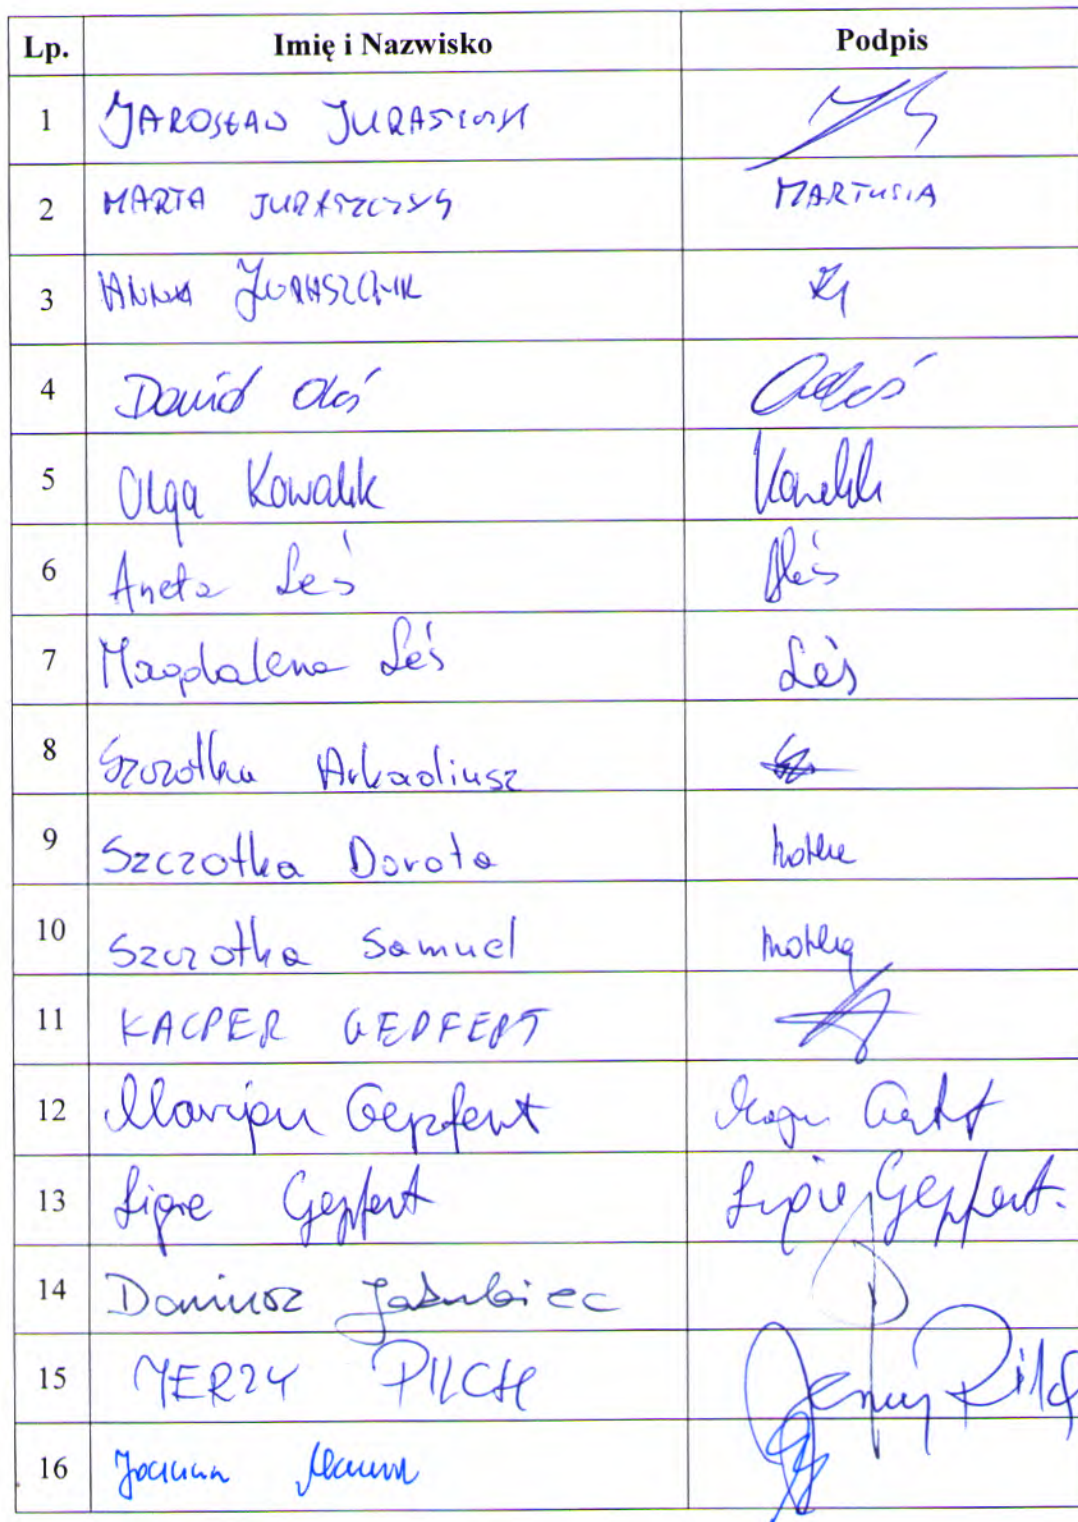 Lp. Imię i Nazwisko Podpis
1 JAROSŁAW
2 MARTA JURASZCZYK MARTUSIA
3 ANNA JURASZCZYK
4 Dawid Oleś
5 Olga Kowalik Kowalik
6 Aneta Leś ALeś
7 Magdalena Leś Leś
8 Szczotka Arkadiusz
9 Szczotka Dorota
10 Szczotka Samuel
11 KACPER GEPFERT
12 Marian Gepfert
13 Ligia Gepfert Ligia Gepfert
14 Dariusz Jakubiec
15 JERZY PILCH Jerzy Pilch
16 Joanna